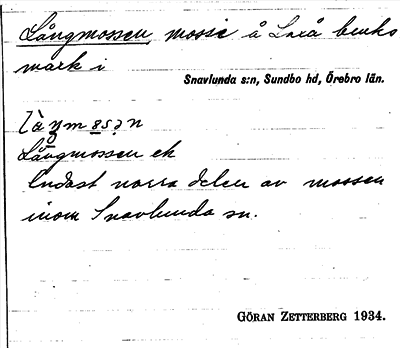 Långmossen, mosse å Laxå bruks
mark i
Snavlunda s:n, Sundbo hd, Örebro län.
Långmossen ek
Endast norra delen av mossen
inom Snavlunda sn.
GÖRAN ZETTERBERG 1934.